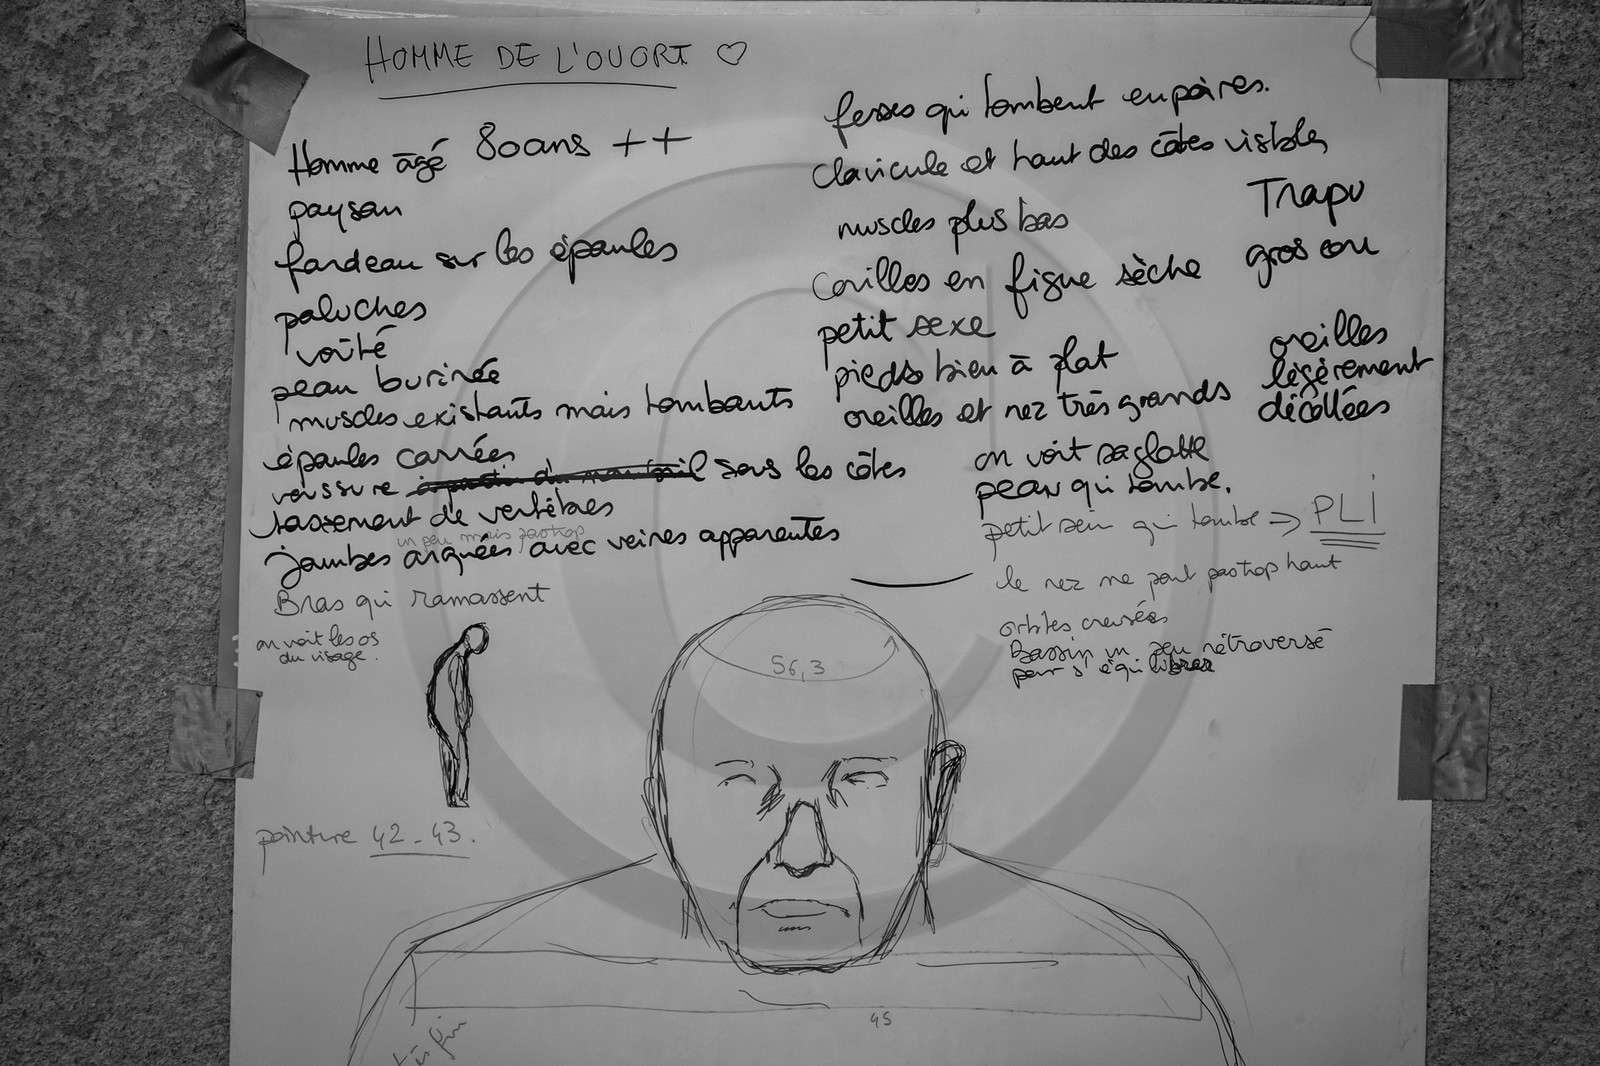 HOMME DE L'OUORT ♡
Homme âgé 80 ans ++
paysan
fardeau sur les épaules
paluches
voûté
peau burinée
muscles existants mais tombants
épaules carrées
voussure sous les côtes
tassement de vertèbres
un peu mais pas trop
jambes arquées avec veines apparentes
Bras qui ramassent
on voit les os
du visage.
pointure 42-43.
fesses qui tombent en poires.
clavicule et haut des côtes visibles
muscles plus bas
Couilles en figue sèche
petit sexe
pieds bien à plat
oreilles et nez très grands
on voit sa glotte
peau qui tombe.
petit sein qui tombe => PLI
le nez ne part pas trop haut
orbites creusées
Bassin un peu rétroversé
pour s'équilibrer
Trapu
gros cou
oreilles
légèrement
décollées
56,3
45
très fin